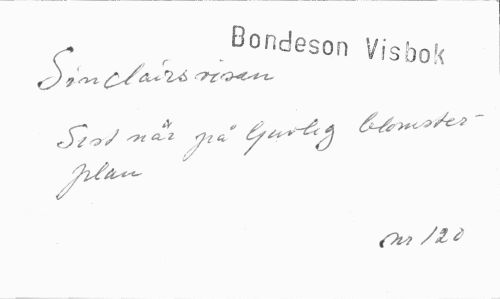 Bondeson Visbok
Sinclairsvisan
Sist när på ljuvlig blomster-
plan
nr 120